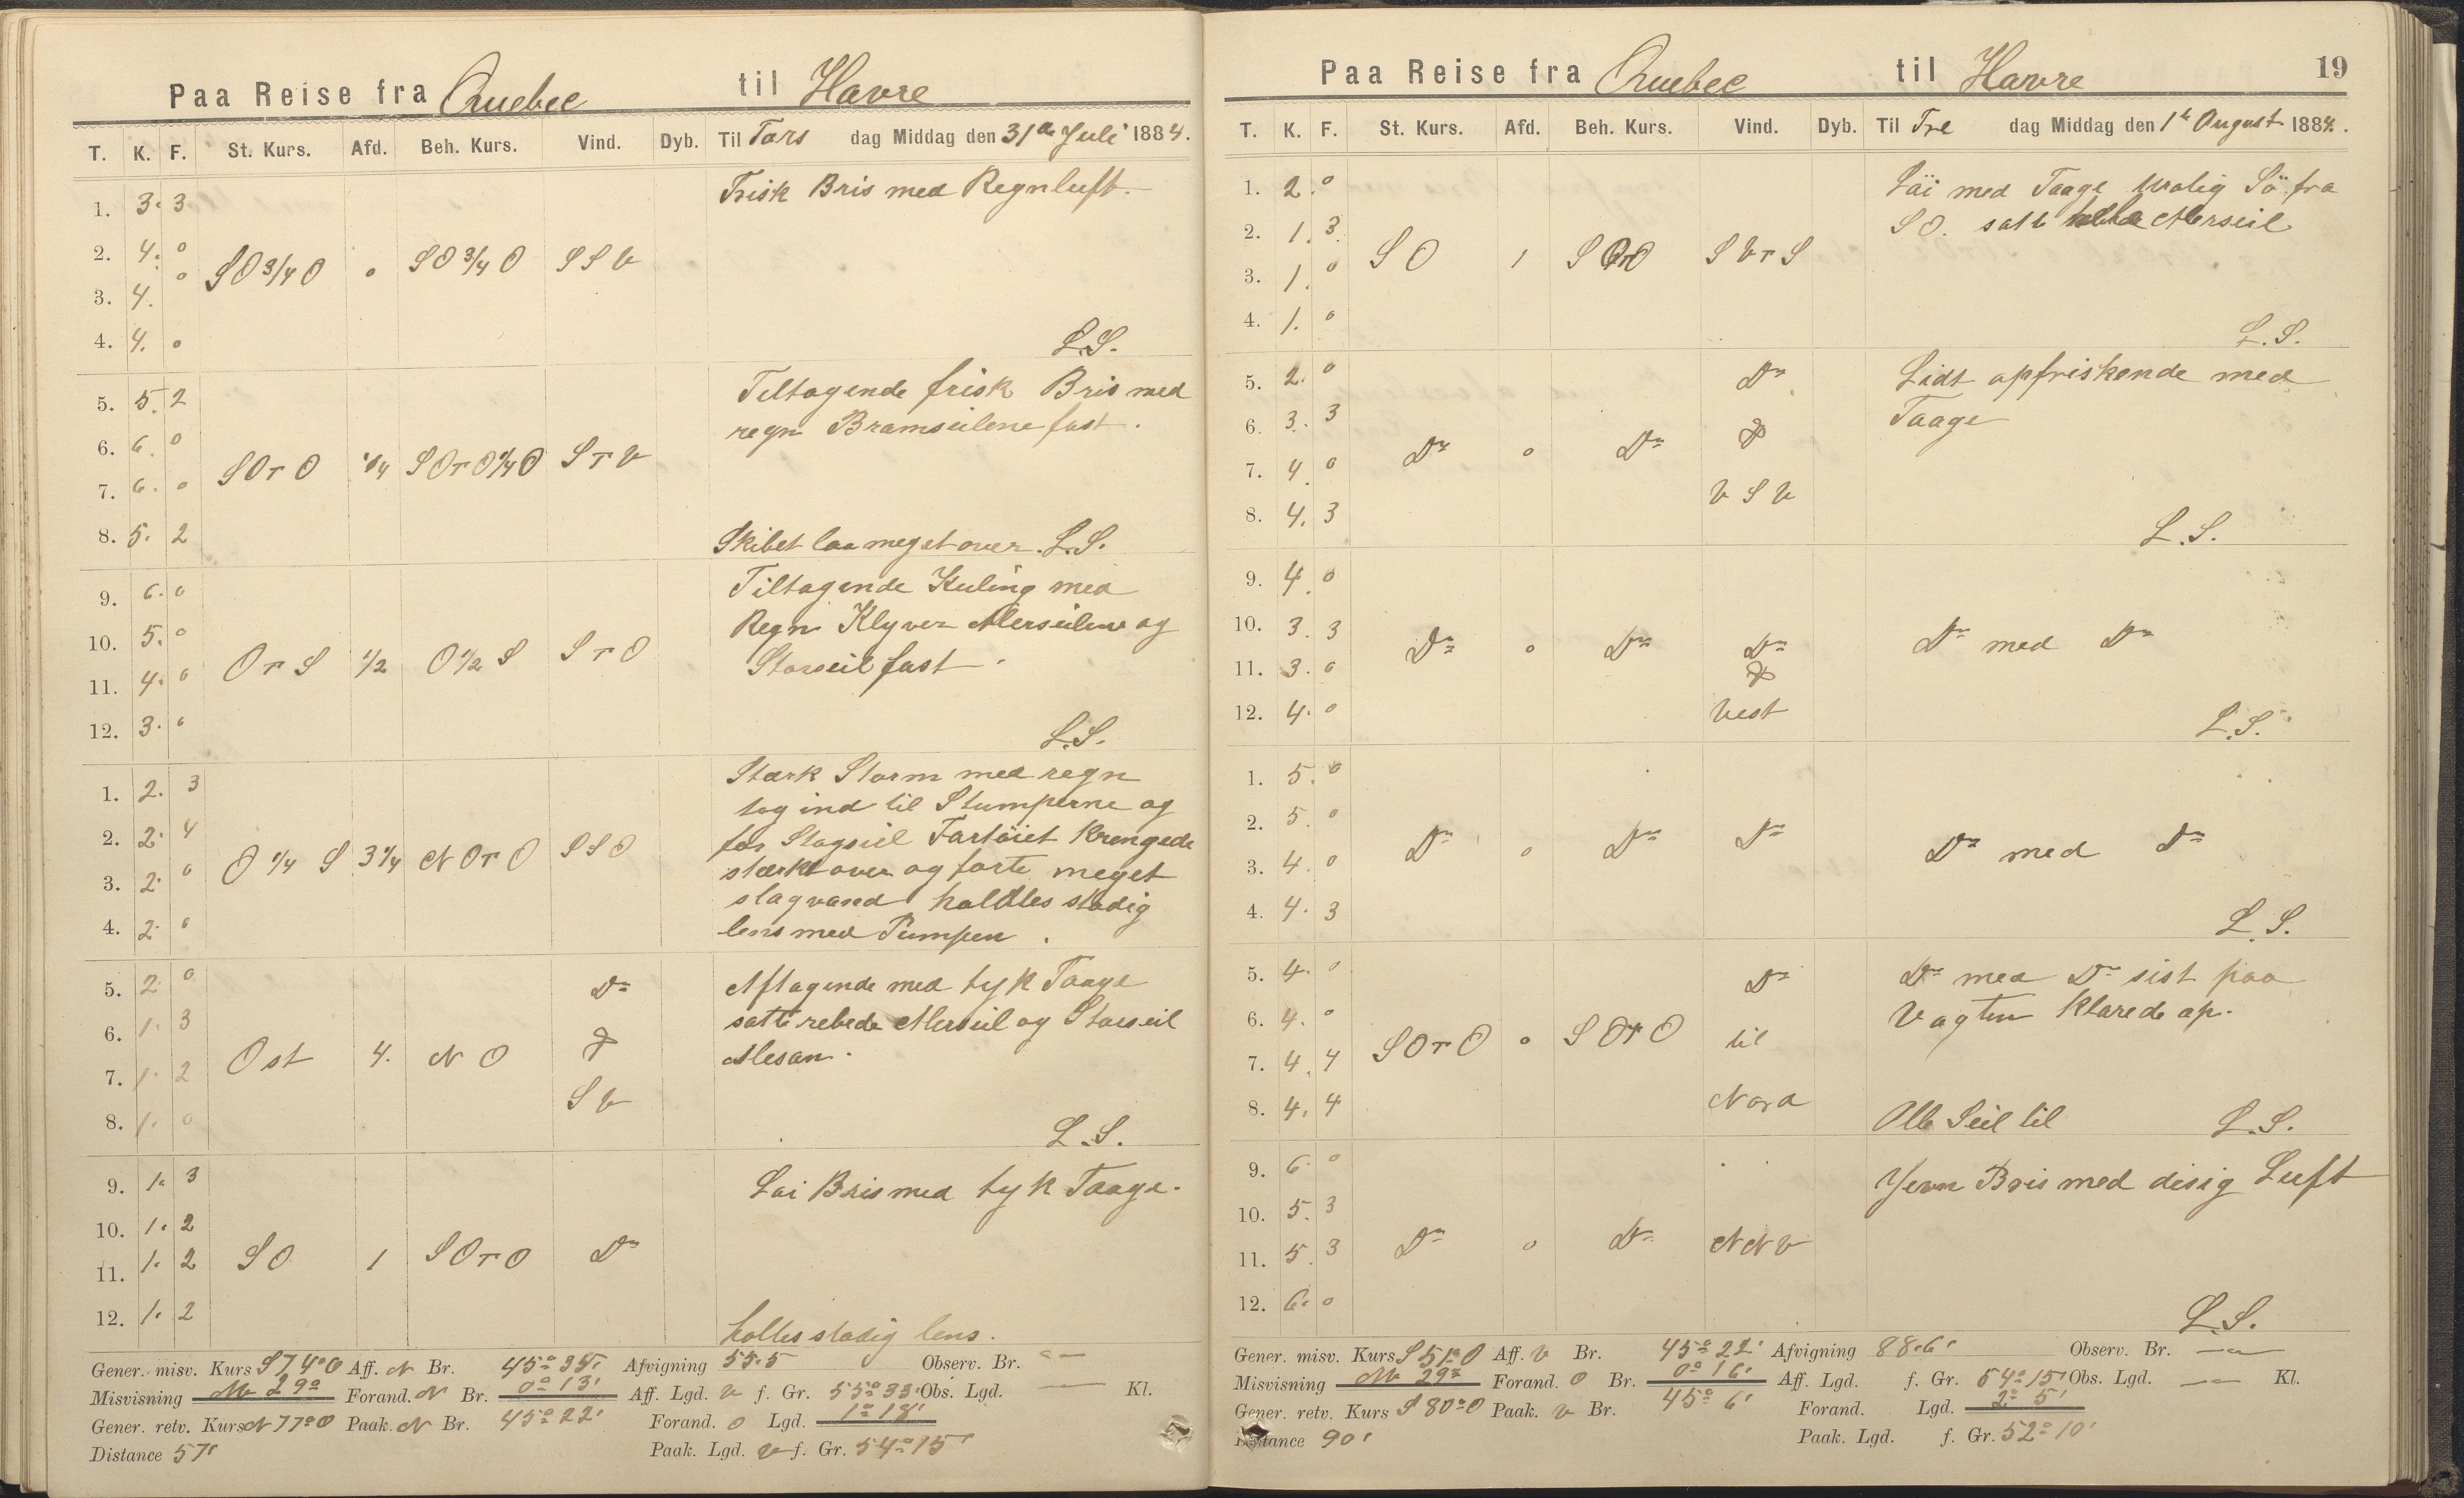 Paa Reise fra Quebec til Havre
T. K. F. St. Kurs. Afd. Beh. Kurs. Vind. Dyb. Til Tors dag Middag den 31te Juli 1884.
Frisk Bris med Regnluft.
1. 3. 3
2. 4. 0
SO 3/4 O 0 SO 3/4 O SSV
3. 4. 0
4. 4. 0
L.S.
Tiltagende frisk Bris med
5. 5. 2
regn Bramseilene fast.
6. 6. 0
SOrO 1/4 SOrO 1/4 O SrV
7. 6. 0
8. 5. 2
Skibet laa meget over. L.S.
Tiltagende Kuling med
9. 6. 0
Regn Klyver Merseilene og
10. 5. 0
OrS 1/2 O 1/2 S SrO
Storseil fast.
11. 4. 0
12. 3. 0
L.S.
Stærk Storm med regn
1. 2. 3
tog ind til Stumperne og
2. 2. 4
for Stagseil Fartöiet Krengede
O 1/4 S 3 1/4 NOrO SSO
stærkt over og forte meget
3. 2. 0
slagvand holdtes stadig
4. 2. 0
lens med Pumpen.
Aftagende med tyk Taage
5. 2. 0 Do
satte rebede Merseil og Storseil
6. 1. 3 &
Mesan.
Ost 4. NO
7. 1. 2
SV
8. 1. 0
L.S.
Lai Bris med tyk Taage.
9. 1. 3
10. 1. 2
SO 1 SOrO Do
11. 1. 2
12. 1. 2
holtes stadig lens.
Gener. misv. Kurs S 74° O Aff. N Br. 45° 35' Afvigning 55.5 Observ. Br. —
Misvisning NV 29° Forand. N Br. 0° 13' Aff. Lgd. V f. Gr. 55° 33' Obs. Lgd. — Kl.
Gener. retv. Kurs N 77° O Paak. N Br. 45° 22' Forand. O Lgd. 1° 18'
Distance 57' Paak. Lgd. V f. Gr. 54° 15'
Paa Reise fra Quebec til Havre 19
T. K. F. St. Kurs. Afd. Beh. Kurs. Vind. Dyb. Til Fre dag Middag den 1te August 1884.
Läi med Taage Urolig Sö fra
1. 2. 0
SO. satte Merseil
2. 1. 3
SO 1 SOrO SVrS
3. 1. 0
4. 1. 0
L.S.
Lidt opfriskende med
5. 2. 0 Do
Taage
6. 3. 3 &
Do 0 Do
7. 4. 0
VSV
8. 4. 3
L.S.
9. 4. 0
10. 3. 3
Do 0 Do Do Do med Do
11. 3. 0 &
12. 4. 0 Vest
L.S.
1. 5. 0
2. 5. 0
Do 0 Do Do Do med Do
3. 4. 0
4. 4. 3
L.S.
5. 4. 0 Do Do med Do sist paa
Vagten Klarede op.
6. 4. 0
SOrO 0 SOrO til
7. 4. 4
8. 4. 4 Nord
Alle Seil til L.S.
9. 6. 0
Jevn Bris med disig Luft
10. 5. 3
Do 0 Do NNV
11. 5. 3
12. 6. 0
L.S.
Gener. misv. Kurs S 51° O Aff. V Br. 45° 22' Afvigning 88.6' Observ. Br. —
Misvisning NV 29° Forand. O Br. 0° 16' Aff. Lgd. f. Gr. 54° 15' Obs. Lgd. — Kl.
Gener. retv. Kurs S 80° O Paak. V Br. 45° 6' Forand. Lgd. 2° 5'
Distance 90' Paak. Lgd. f. Gr. 52° 10'